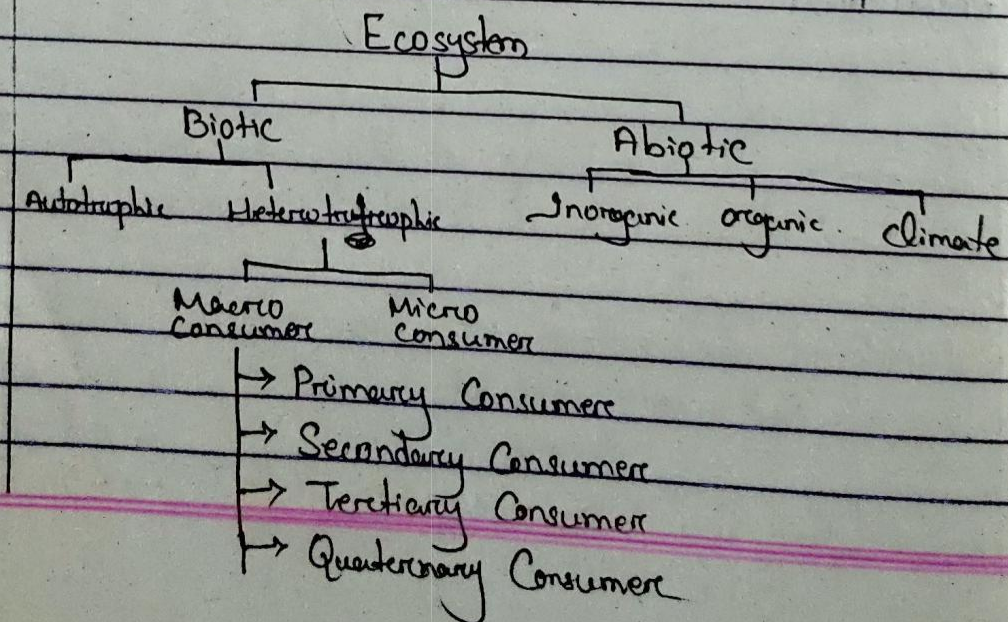 Ecosystem
Biotic Abiotic
Autotrophic Heterotrophic Inorganic organic Climate
Macro Consumer Micro Consumer
Primary Consumer
Secondary Consumer
Tertiary Consumer
Quaternary Consumer